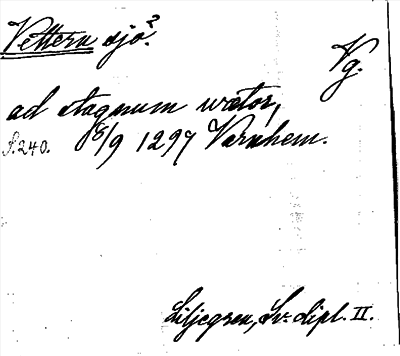 Vettern sjö?
Vg.
ad stagnum wætor,
S. 240. 8/9 1297 Varnhem.
Liljegren, Sv. Dipl. II.